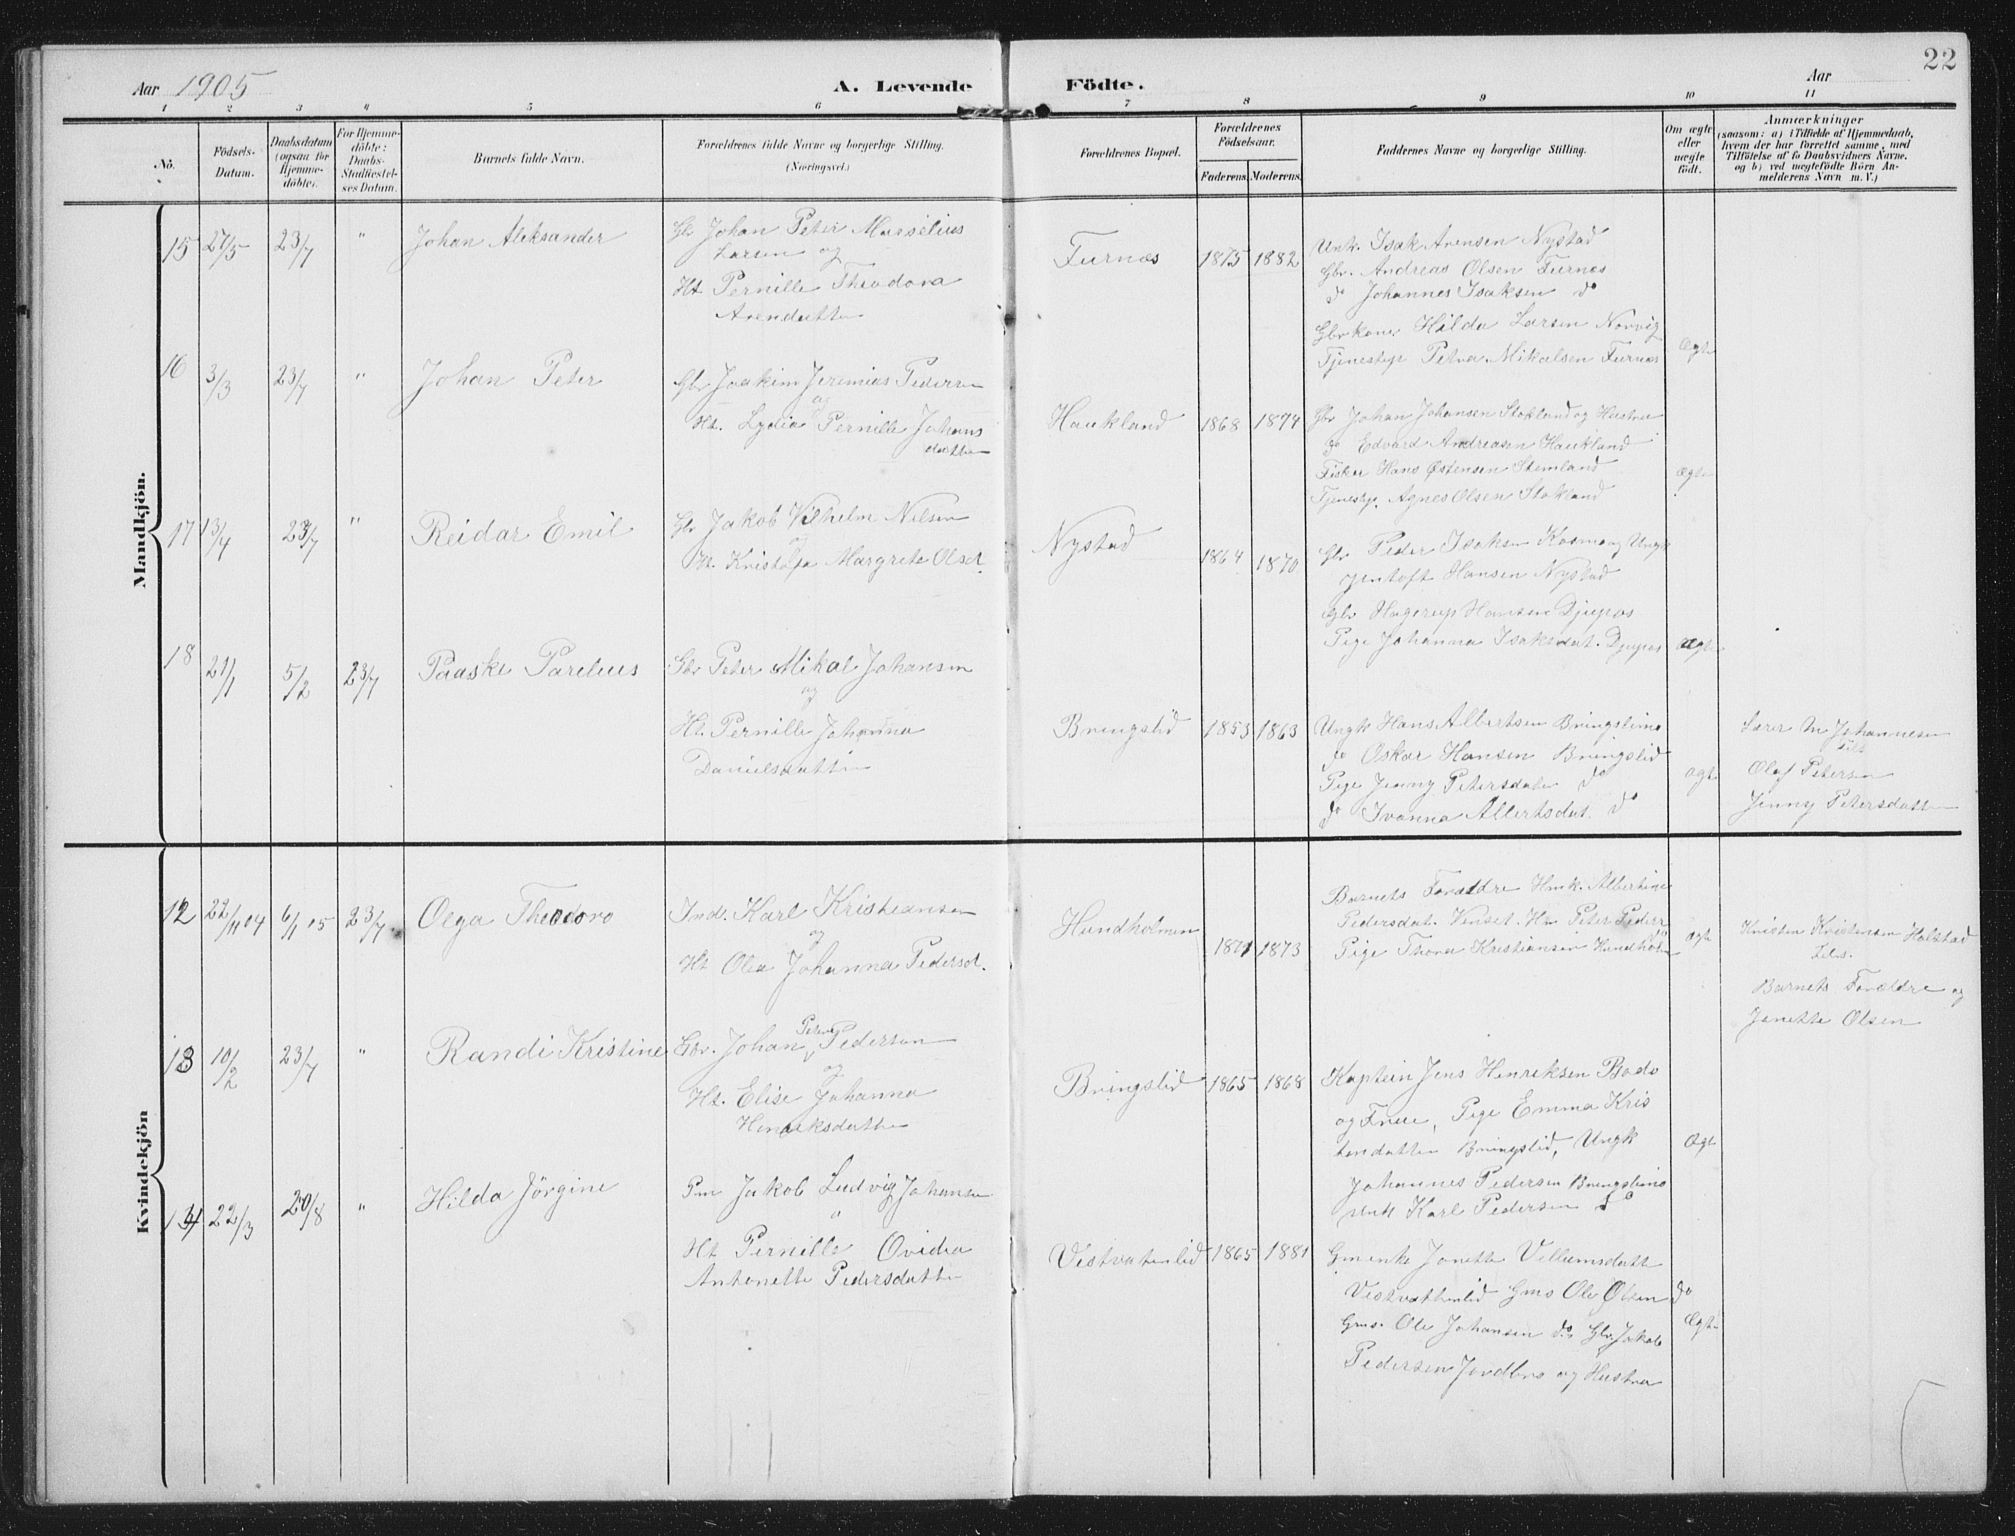 22
Aar 1905
A. Levende Födte.
Aar
1 2 3 4 5 6 7 8 9 10 11
No.
Födsels-Datum.
Daabsdatum (ogsaa for Hjemme-döbte).
For Hjemme-döbte: Daabs-Stadfæstel-ses Datum.
Barnets fulde Navn.
Forældrenes fulde Navne og borgerlige Stilling.
(Næringsvei.)
Forældrenes Bopæl.
Forældrenes Födselsaar.
Faderens. Moderens.
Faddernes Navne og borgerlige Stilling.
Om ægte eller uægte födt.
Anmærkninger
(saasom: a) i Tilfælde af Hjemmedaab,
hvem der har forrettet samme, med
Tilföielse af to Daabsvidners Navne.
og b) ved uægtefödte Börn An-
melderens Navn m. V.)
Mandkjön.
15 27/5 23/7 " Johan Aleksander
Gbr Johan Peter Marselius
Larsen og
Ht Pernille Theodora
Arendatter
Furnæs 1875 1882
Unk. Isak Arensen Nystad
Gbr. Andreas Olsen Furnæs
do Johannes Isaksen do
Gbrkone Hilda Larsen Norvig
Tjenestep Petra Mikalsen Furnæs
Ægte
16 3/3 23/7 " Johan Peter
Gbr Joakim Jeremias Pedersen
og
Ht. Lydia Pernille Johans
datter
Haukland 1868 1874
Gbr Johan Johansen Stokland og Hustru
do Edvard Andreasen Haukland
Fisker Hans Østensen Stemland
Tjenestep. Agnes Olsen Stokland
Ægte
17 13/4 23/7 " Reidar Emil
Gbr Jakob Vilhelm Nilsen
og
Ht. Kristofa Margrete Olsd.
Nystad 1864 1870
Gbr Peder Isaksen Kosmo og Ungk
Jentoft Hansen Nystad
Gbr Hagerup Hansen Djupos
Pige Johanna Isaksdat. Djupos
ægte
18 21/1 5/2 23/7 Paaske Parelius
Gbr Peter Mikal Johansen
og
Ht. Pernille Johanna
Danielsdatter
Bringslid 1853 1863
Ungk Hans Albertsen Bringslimo
do Oskar Hansen Bringslid
Pige Jenny Petersdatr do
do Ivanna Albertsdat. do
ægte
Lærer M Johannesen
Olaf Petersen
Jenny Petersdatter
Kvindekjön
12 22/11 04 6/1 05 23/7 Olga Theodora
Ind. Karl Kristiansen
og
Ht Olea Johanna Pedersd.
Hundholmen 1871 1873
Barnets Forældre Hmk. Albertine
Pedersdat. Venset. Hm Peter Pedersen
Pige Thora Kristiansen Hundholm
ægte
Kristen Kristensen Halstad
Barnets Forældre og
Janette Olsen
13 10/2 23/7 " Randi Kristine
Gbr. Johan Peter Pedersen
og
Ht. Elise Johanna
Henriksdatter
Bringslid 1865 1868
Kaptein Jens Henriksen Bodo
og Frue, Pige Emma Kris
tendatter Bringslid, Ungk
Johannes Pedersen Bringslimo
Karl Pedersen do
Ægte
14 22/3 20/8 " Hilda Jörgine
Pm Jakob Ludvig Johansen
"
Ht Pernille Ovidia
Antonette Pedersdatter
Vestvatenlid 1865 1881
Gmenke Janette Vellumsdatt
Vestvattenlid Gms Ole Olsen do
Gms. Ole Johansen do, Gbr Jakob
Pedersen Jordbro og Hustru
Ægte